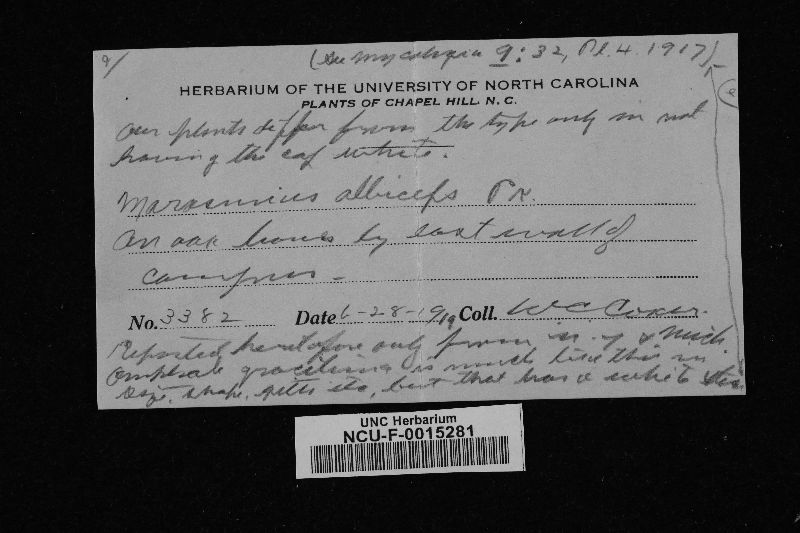 9/
(see Mycologia 9:32, Pl. 4. 1917)
HERBARIUM OF THE UNIVERSITY OF NORTH CAROLINA
PLANTS OF CHAPEL HILL, N. C.
Our plants differ from the type only in not
having the cap white.
Marasmius albiceps Pk.
On oak leaves by east wall of
campus -
No. 3382 Date 6-28-1919 Coll. W C Coker.
Reported heretofore only from N. Y. & Mich.
Omphalia gracillima is much like this in
size, shape, gills etc, but that has a white
UNC Herbarium
NCU-F-0015281